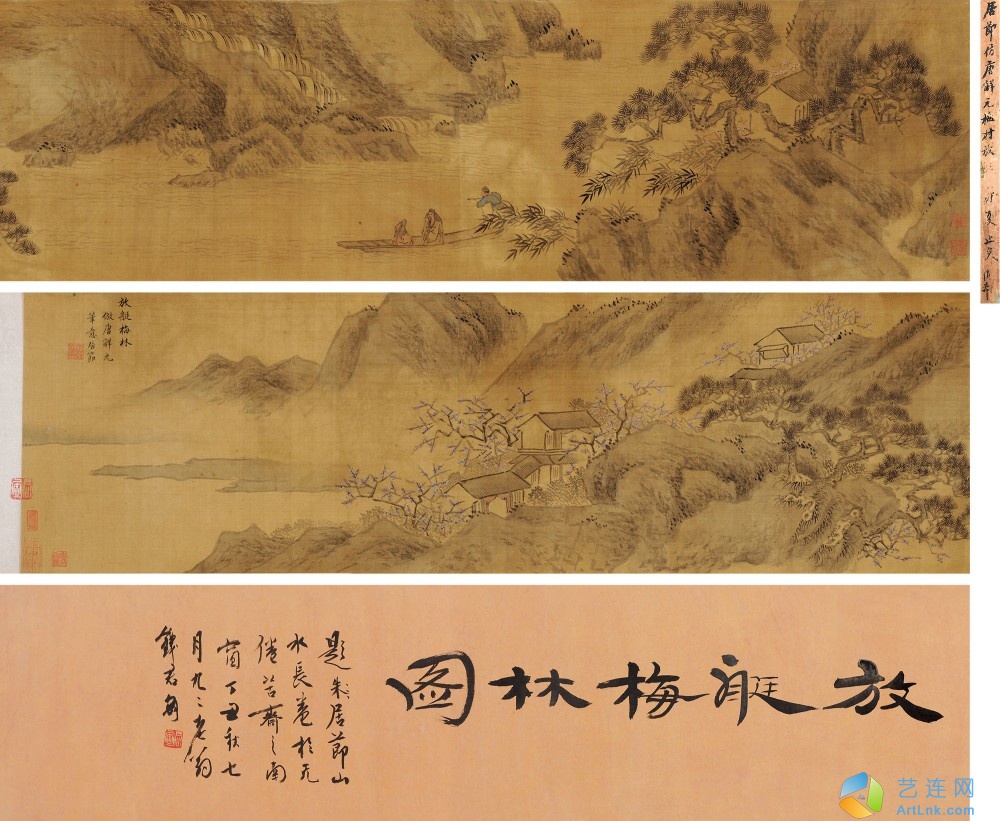 居節仿唐解元梅村放
放艇梅林
倣唐解元
筆意居節
放艇梅林圖
題居節山
水長卷於无
倦苦齋之南
窗丁丑秋七
月九二老翁
錢君匋
艺连网
ArtLnk.com